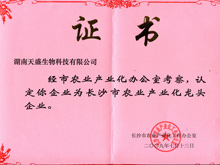 证书
湖南天盛生物科技有限公司
经市农业产业化办公室考察，认
定你企业为长沙市农业产业化龙头
企业。
长沙市农业产业化办公室
二〇〇九年十月十三日